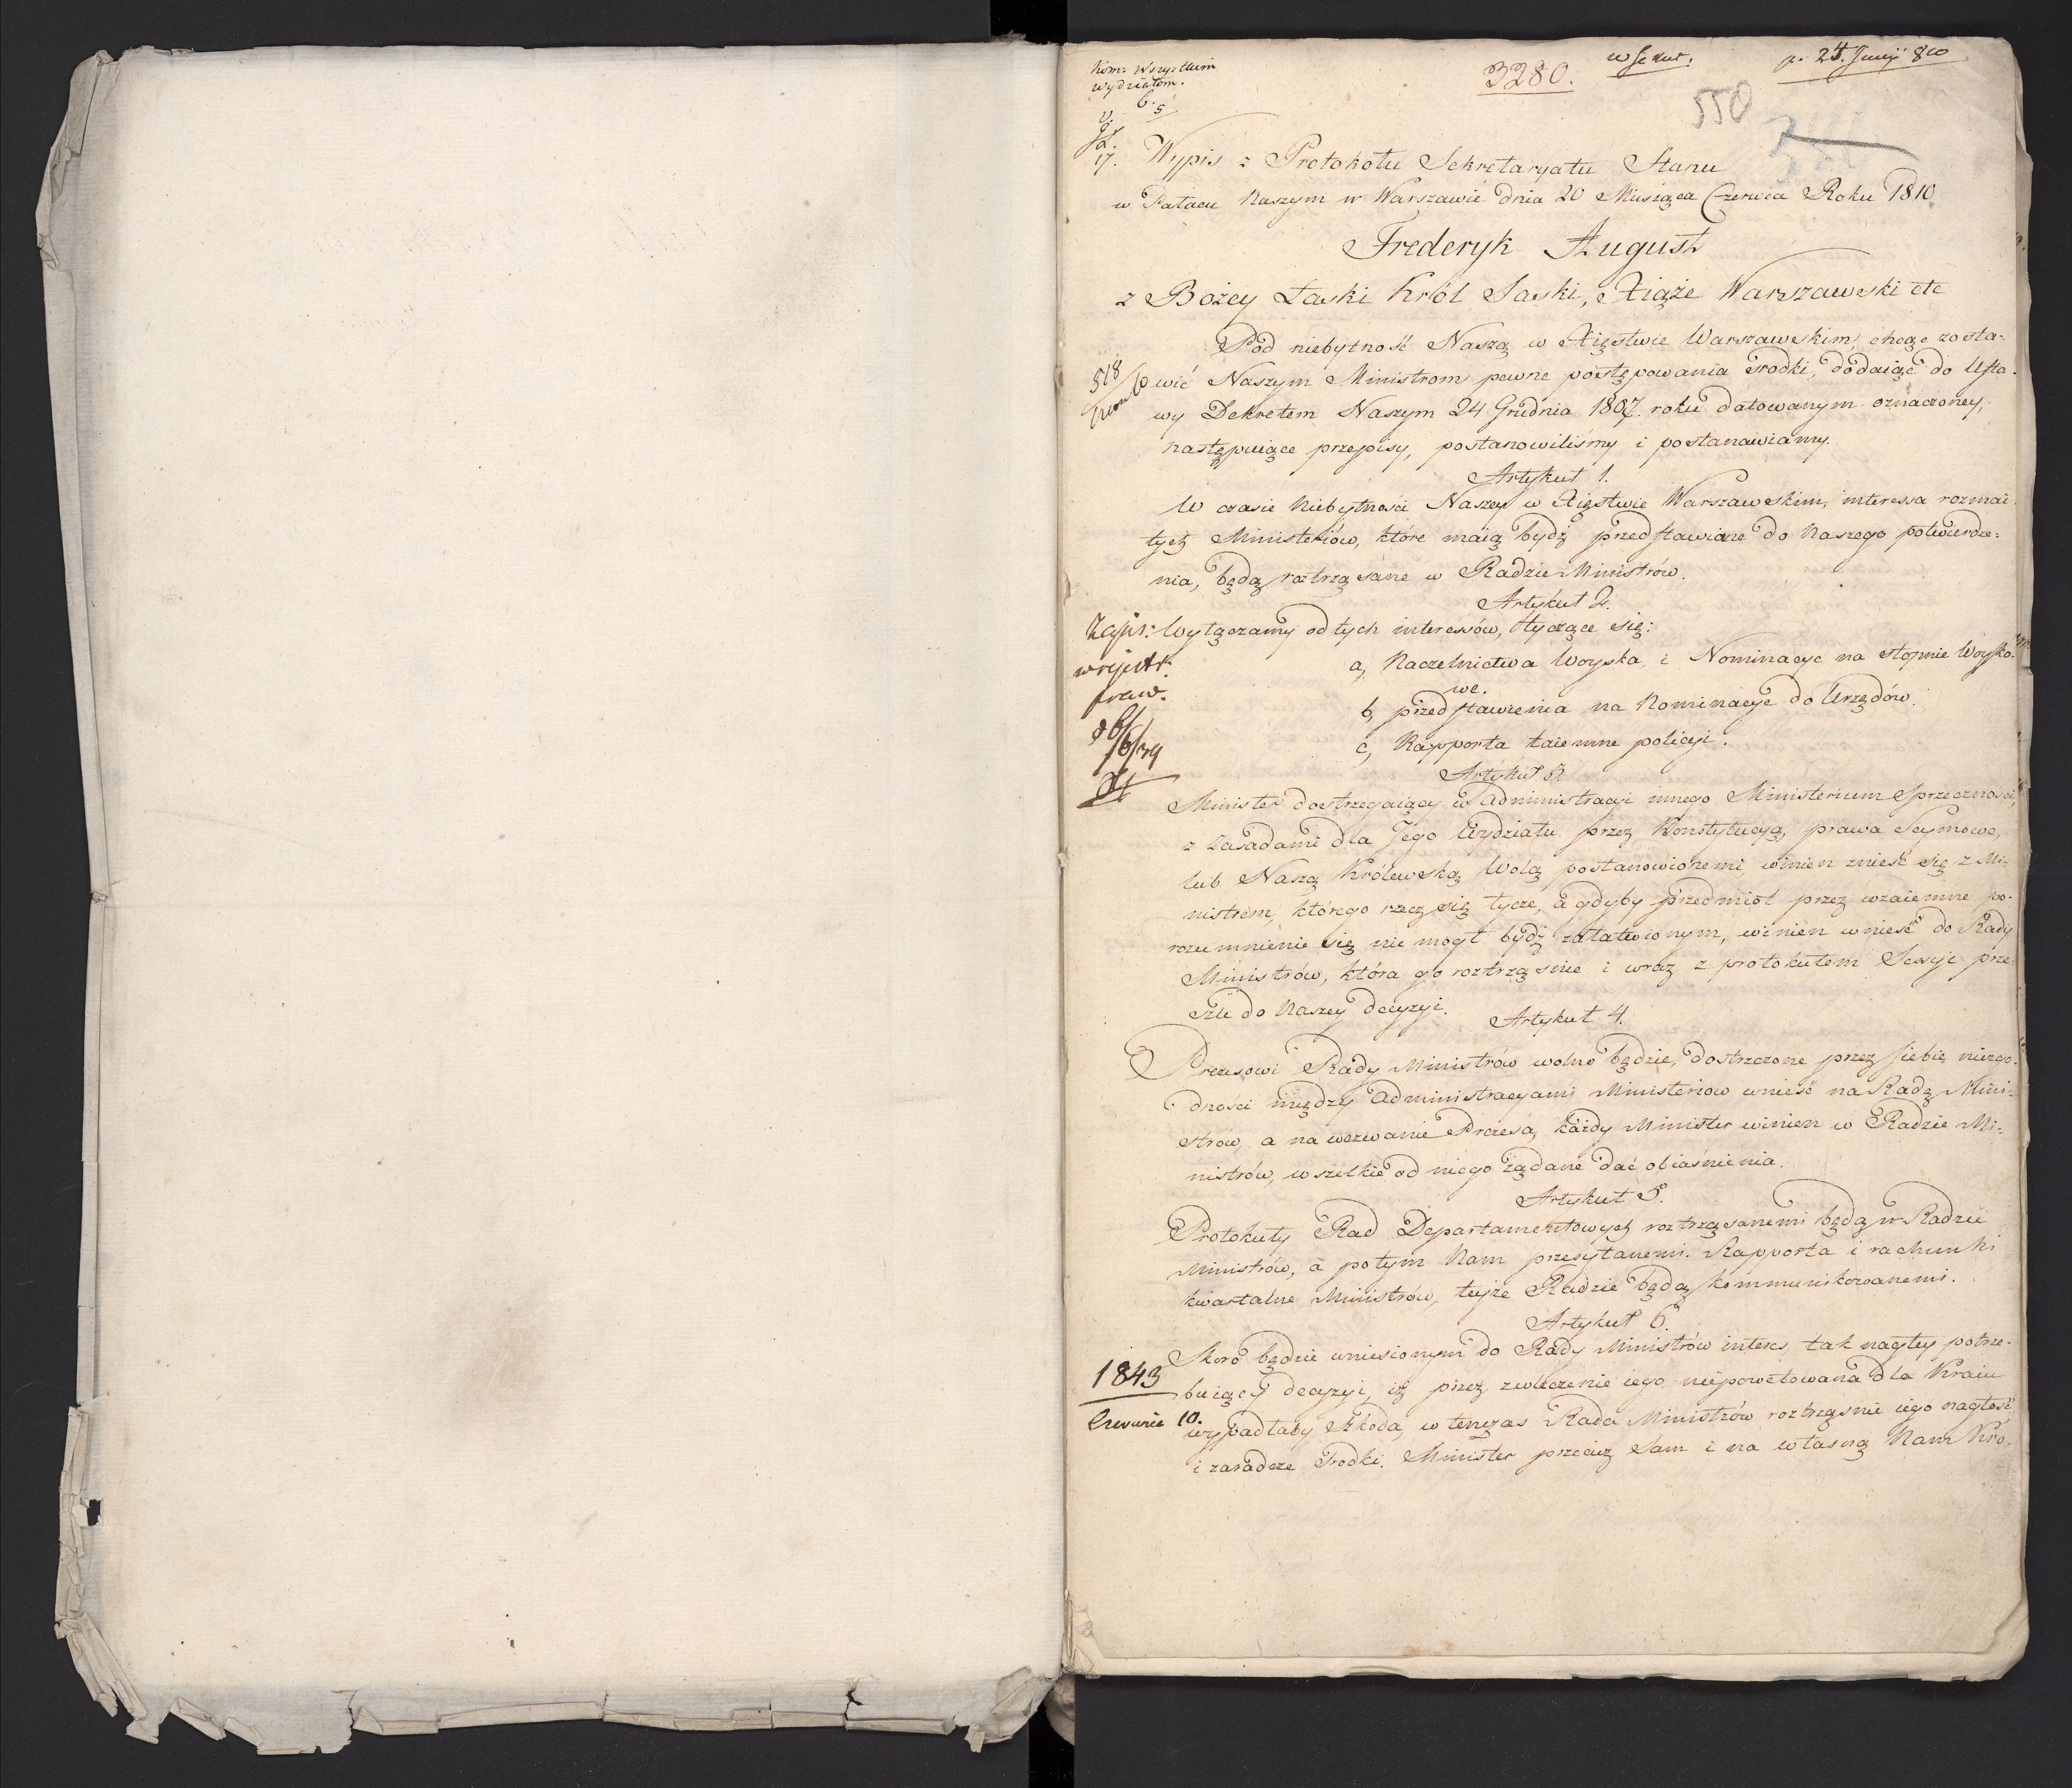 Kom: wszystkim
wydziałom.
3280.
w Sekret:
p. 24. Junij 810
550
Wypis z Protokołu Sekretaryatu Stanu
w Pałacu Naszym w Warszawie dnia 20 Miesiąca Czerwca Roku 1810
Frederyk August
z Bożey Łaski Król Saski, Xiąże Warszawski etc
Pod niebytność Naszą w Xięstwie Warszawskim, chcąc zosta-
518
wić Naszym Ministrom pewne postępowania srodki, dodaiąc do Usta-
wy Dekretem Naszym 24 Grudnia 1807. roku datowanym oznaczoney,
następuiące przepisy, postanowiliśmy i postanawiamy.
Artykuł 1.
W czasie Niebytności Naszey w Xięstwie Warszawskim, interessa rozmai-
tych Ministeriów, które maią bydź przedstawiane do Naszego potwierdze-
nia, będą roztrząsane w Radzie Ministrów.
Artykuł 2.
Wyłączamy od tych interessów, tyczące się:
a, Naczelnictwa Woyska, i Nominacye na stopnie Woysko-
we.
b, przedstawienia na Nominacye do Urzędów.
c, Rapporta taiemne policyi.
Artykuł 3.
Minister dostrzegaiący w Administracyi innego Ministerium Sprzeczności,
z Zasadami dla Jego Wydziału przez Konstytucyą, prawa Seymowe,
lub Naszą Królewską Wolą postanowionemi, winien znieść się z Mi-
nistrem, którego rzecz się tycze, a gdyby przedmiot przez wzaiemne po-
rozumnienie się nie mogł bydź załatwionym, winien wnieść do Rady
Ministrów, która go roztrząśnie i wraz z protokułem Sessyi prze-
szle do Naszey decyzyi.
Artykuł 4.
Prezesowi Rady Ministrów wolno będzie, dostrzeżone przez siebie niezgo-
dności między Administracyami Ministeriow wnieść na Radę Mini-
strów, a na wezwanie Prezesa, każdy Minister winien w Radzie Mi-
nistrów, wszelkie od niego żądane dać obiaśnienia.
Artykuł 5.
Protokuły Rad Departamentowych roztrząsanemi będą w Radzie
Ministrów, a potym Nam przesyłanemi. Rapporta i rachunki
kwartalne Ministrów, teyże Radzie będą kommunikowanemi.
Artykuł 6.
Skoro będzie wniesionym do Rady Ministrów interes, tak nagłey potrze-
1843
buiący decyzyi, iż przez zwleczenie iego niepowetowana dla Kraiu
Czerwca 10.
wypadłaby szkoda, w tenczas Rada Ministrów roztrząsnie iego nagłość
i zaradcze srodki. Minister przeciez Sam i na własną Nam Kró-